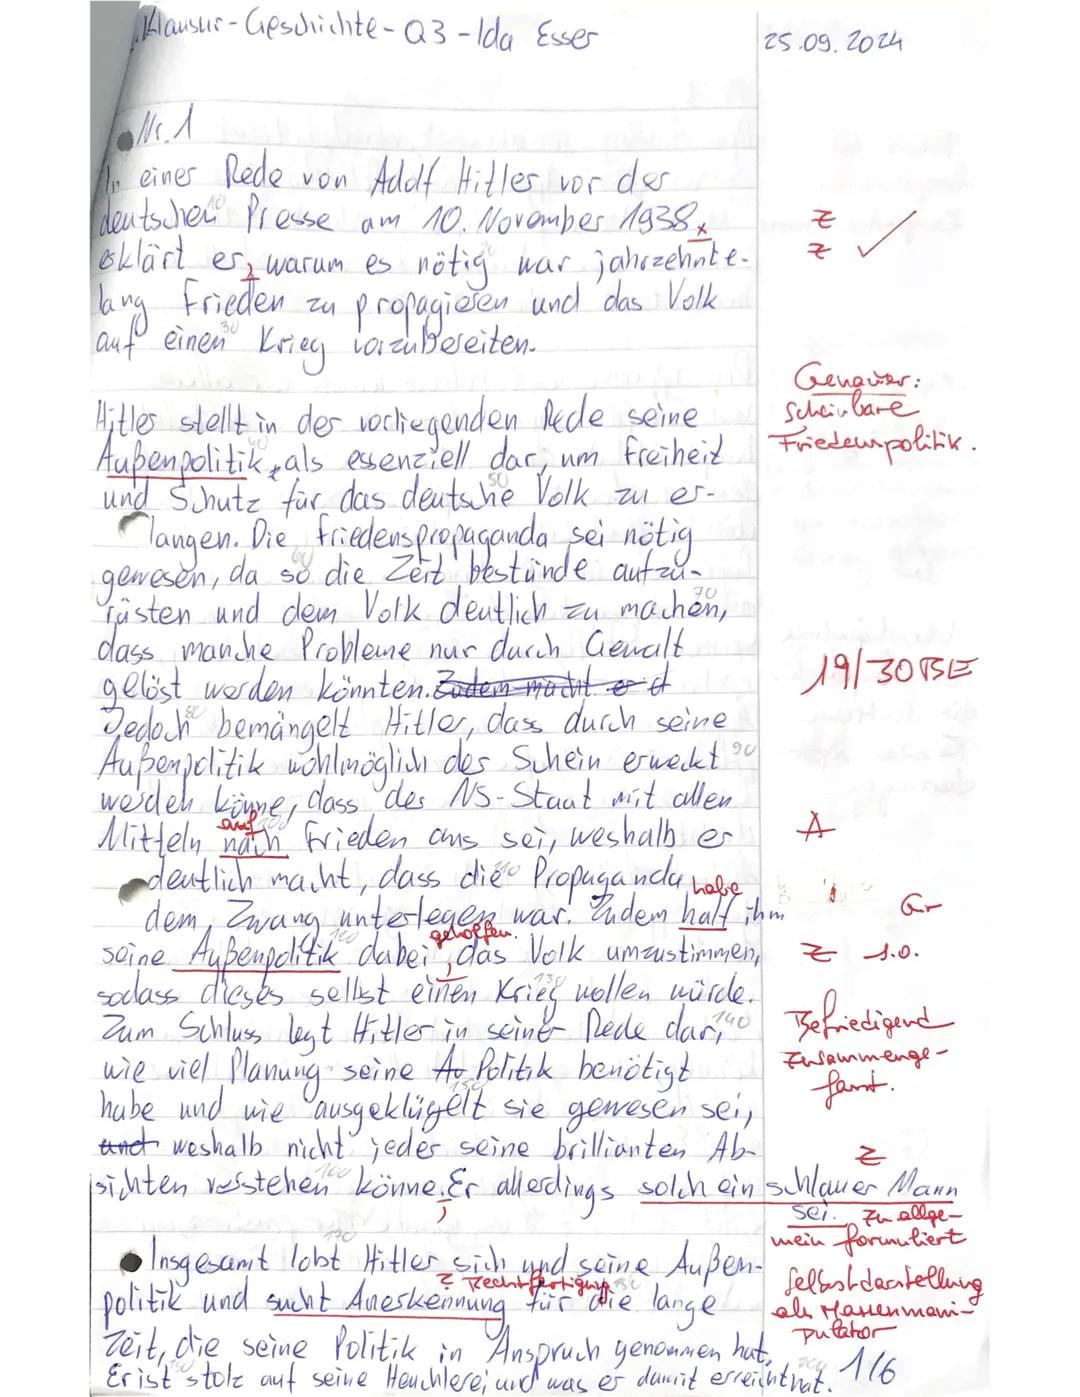 Klausur - Geschichte - Q3 - Ida Esser
25.09.2024
Nr. 1
In einer Rede von Adolf Hitler vor der
deutschen Presse am 10. November 1938
erklärt er, warum es nötig war jahrzehnte-
lang Frieden zu propagieren und das Volk
auf einen Krieg vorzubereiten.
Z
Z ✓
Hitler stellt in der vorliegenden Rede seine
Außenpolitik als essenziell dar, um Freiheit
und Schutz für das deutsche Volk zu er-
langen. Die Friedenspropaganda sei nötig
gewesen, da so die Zeit bestünde aufzu-
rüsten und dem Volk deutlich zu machen,
dass manche Probleme nur durch Gewalt
gelöst werden könnten. Zudem macht er d
Jedoch bemängelt Hitler, dass durch seine
Außenpolitik wohlmöglich der Schein erweckt
werden könne, dass der NS-Staat mit allen
Mitteln nach Frieden aus sei, weshalb er
deutlich macht, dass die Propaganda
dem Zwang unterlegen war. Zudem half ihm
seine Außenpolitik dabei, das Volk umzustimmen,
sodass dieses selbst einen Krieg wollen würde.
Zum Schluss legt Hitler in seiner Rede dar,
wie viel Planung seine Au Politik benötigt
habe und wie ausgeklügelt sie gewesen sei,
und weshalb nicht jeder seine brillianten Ab-
sichten verstehen könne. Er allerdings solch ein schlauer Mann
sei.
Insgesamt lobt Hitler sich und seine Außen-
politik und sucht Anerkennung für die lange
Zeit, die seine Politik in Anspruch genommen hat.
Er ist stolz auf seine Heuchlerei und was er damit erreicht hat.
Genauer:
scheinbare
Friedenspolitik.
19/30 BE
auf
A
habe
Gr
geholfen.
Z s.o.
Befriedigend
zusammenge-
fasst.
Z
Zu allge-
mein formuliert
Z Rechtfertigung
Selbstdarstellung
als Massenmani-
pulator
1/6
10
20
30
40
50
60
70
80
90
100
110
120
130
140
150
160
170
180
190
200